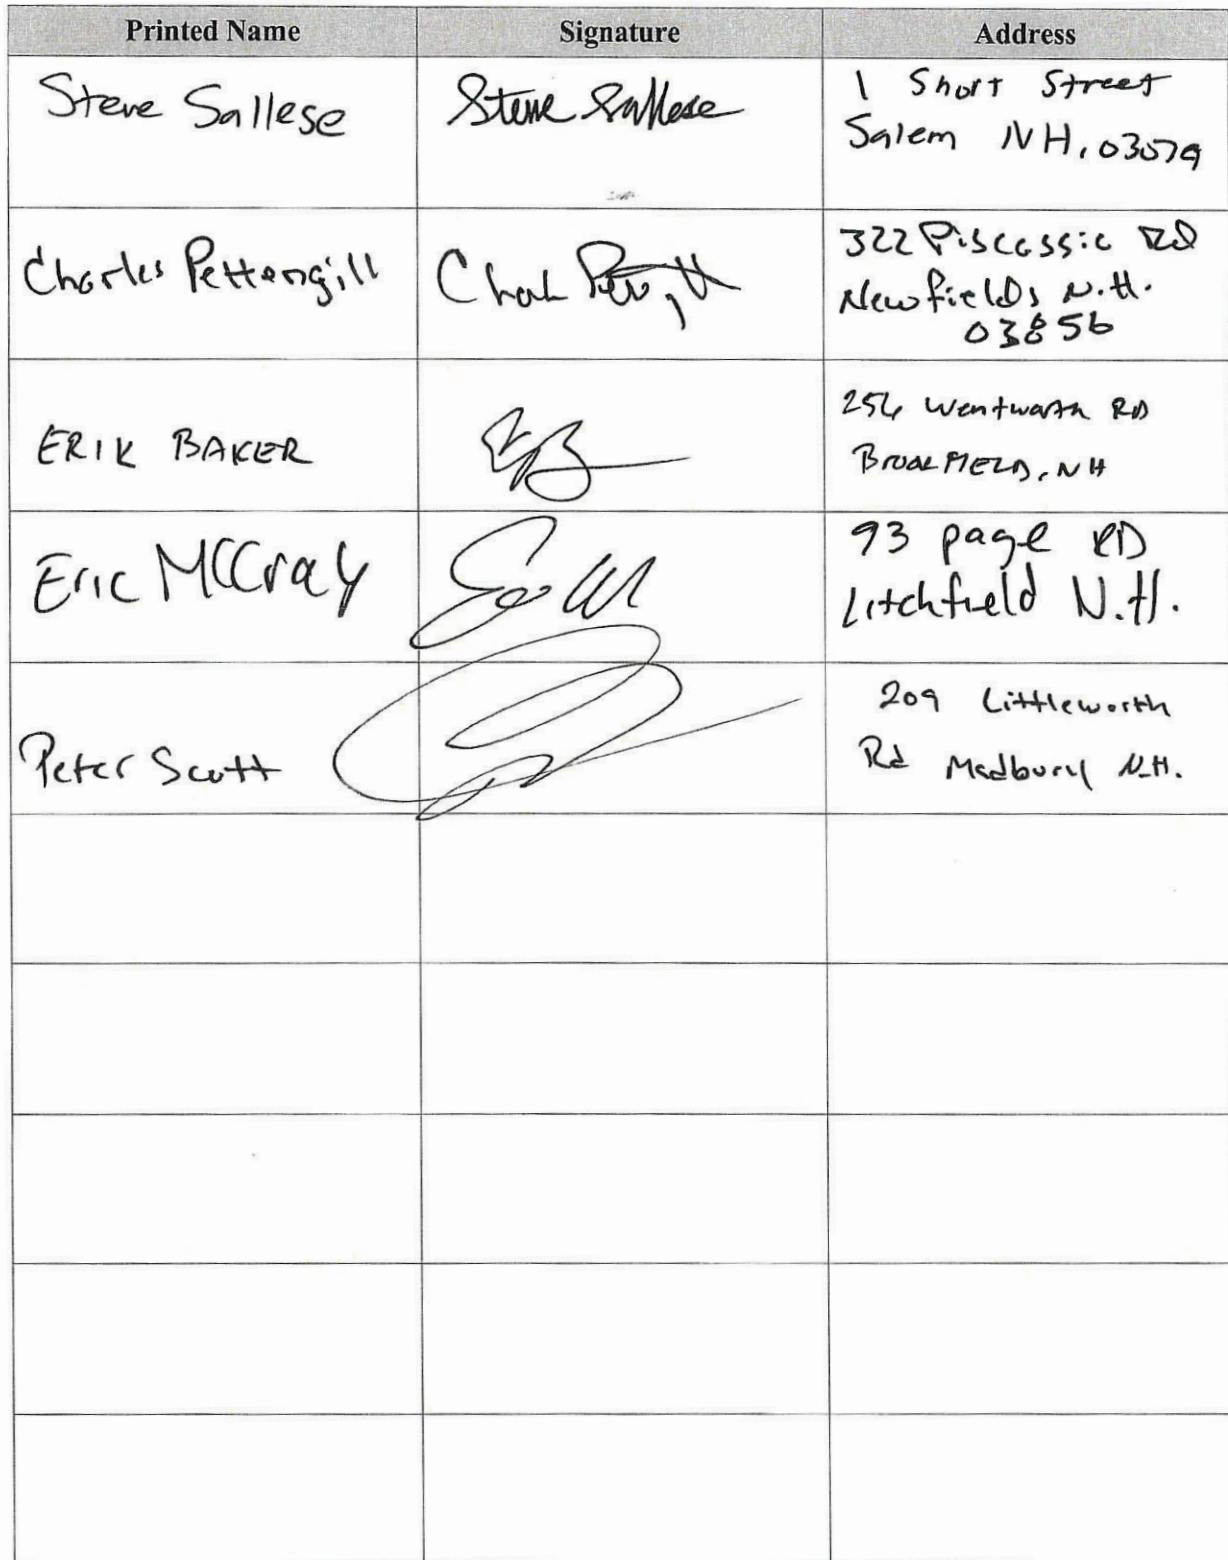 Printed Name Signature Address
Steve Sallese Steve Sallese 1 Short Street
Salem NH, 03079
Charles Pettengill 322 Piscassic Rd
Newfields N.H.
03856
ERIK BAKER Wentworth RD
BROOKFIELD, NH
Eric McCray 93 page RD
Litchfield N.H.
Peter Scott 209 Littleworth
Rd Madbury N.H.